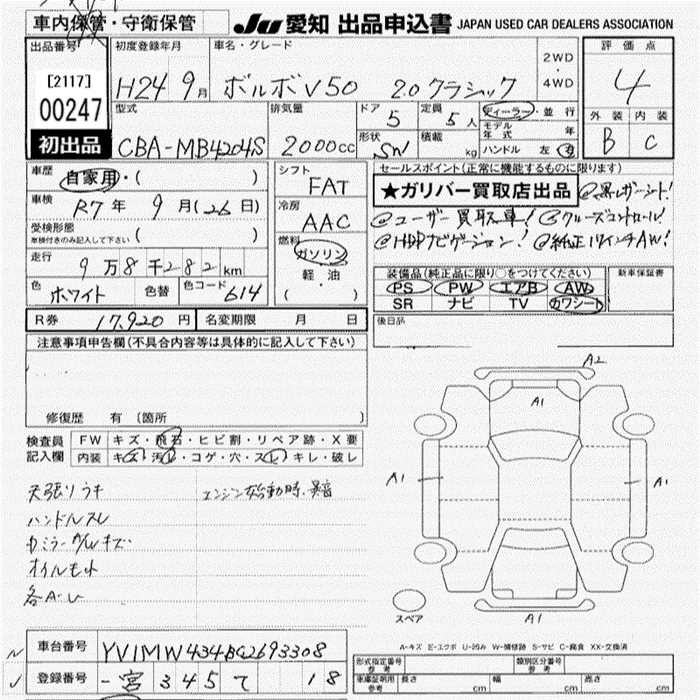 車内保管・守衛保管
JU 愛知 出品申込書 JAPAN USED CAR DEALERS ASSOCIATION
出品番号
[2117]
00247
初出品
初度登録年月
H24 9月
車名・グレード
ボルボV50 2.0クラシック
2WD
・
4WD
評価点
4
外装 内装
B C
型式
CBA-MB4204S
排気量
2000cc
ドア
5
定員
5人
形状
SW
積載
kg
ディーラー・並行
モデル年式 年
ハンドル 左 右
車歴
自家用・( )
車検
R7年 9月(26日)
受検形態
車検付きのみ記入して下さい ( )
走行
9万8千282km
色
ホワイト
色替
色コード
614
シフト
FAT
冷房
AAC
燃料
ガソリン
軽・油
( )
セールスポイント(正常に機能するものに限ります)
★ガリバー買取店出品 @黒レザーシート!
@ユーザー買取車! @クルーズコントロール!
@HDDナビゲーション! @純正17インチAW!
装備品(純正品に限り○をつけてください)
PS PW エアB AW
SR ナビ TV カワシート
新車保証書
後日品
R券 17,920円 名変期限 月 日
注意事項申告欄(不具合内容等は具体的に記入して下さい)
修復歴 有 (箇所 )
検査員記入欄
FW キズ・飛石・ヒビ割・リペア跡・X要
内装 キズ・汚レ・コゲ・穴・スレ・キレ・破レ
天張りウキ
エンジン始動時、異音
ハンドルスレ
カラーP/Wキズ
オイルもれ
各A・U
A2
A1
A1
A1
A1
スペア
A-キズ E-エクボ U-凹み W-補修跡 S-サビ C-腐食 XX-交換済
車台番号
YV1MW434BC2693308
登録番号
一宮 345 て 18
形式指定番号 参考
類別区分番号 参考
車庫証明用 参考
長さ cm 幅 cm 高さ cm